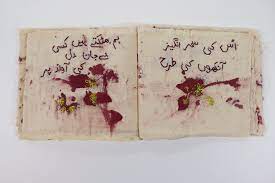 اس کی سحر انگیز
آنکھوں کی طرح
ہم ہیں کسی
بے جان دل
کی آواز پر